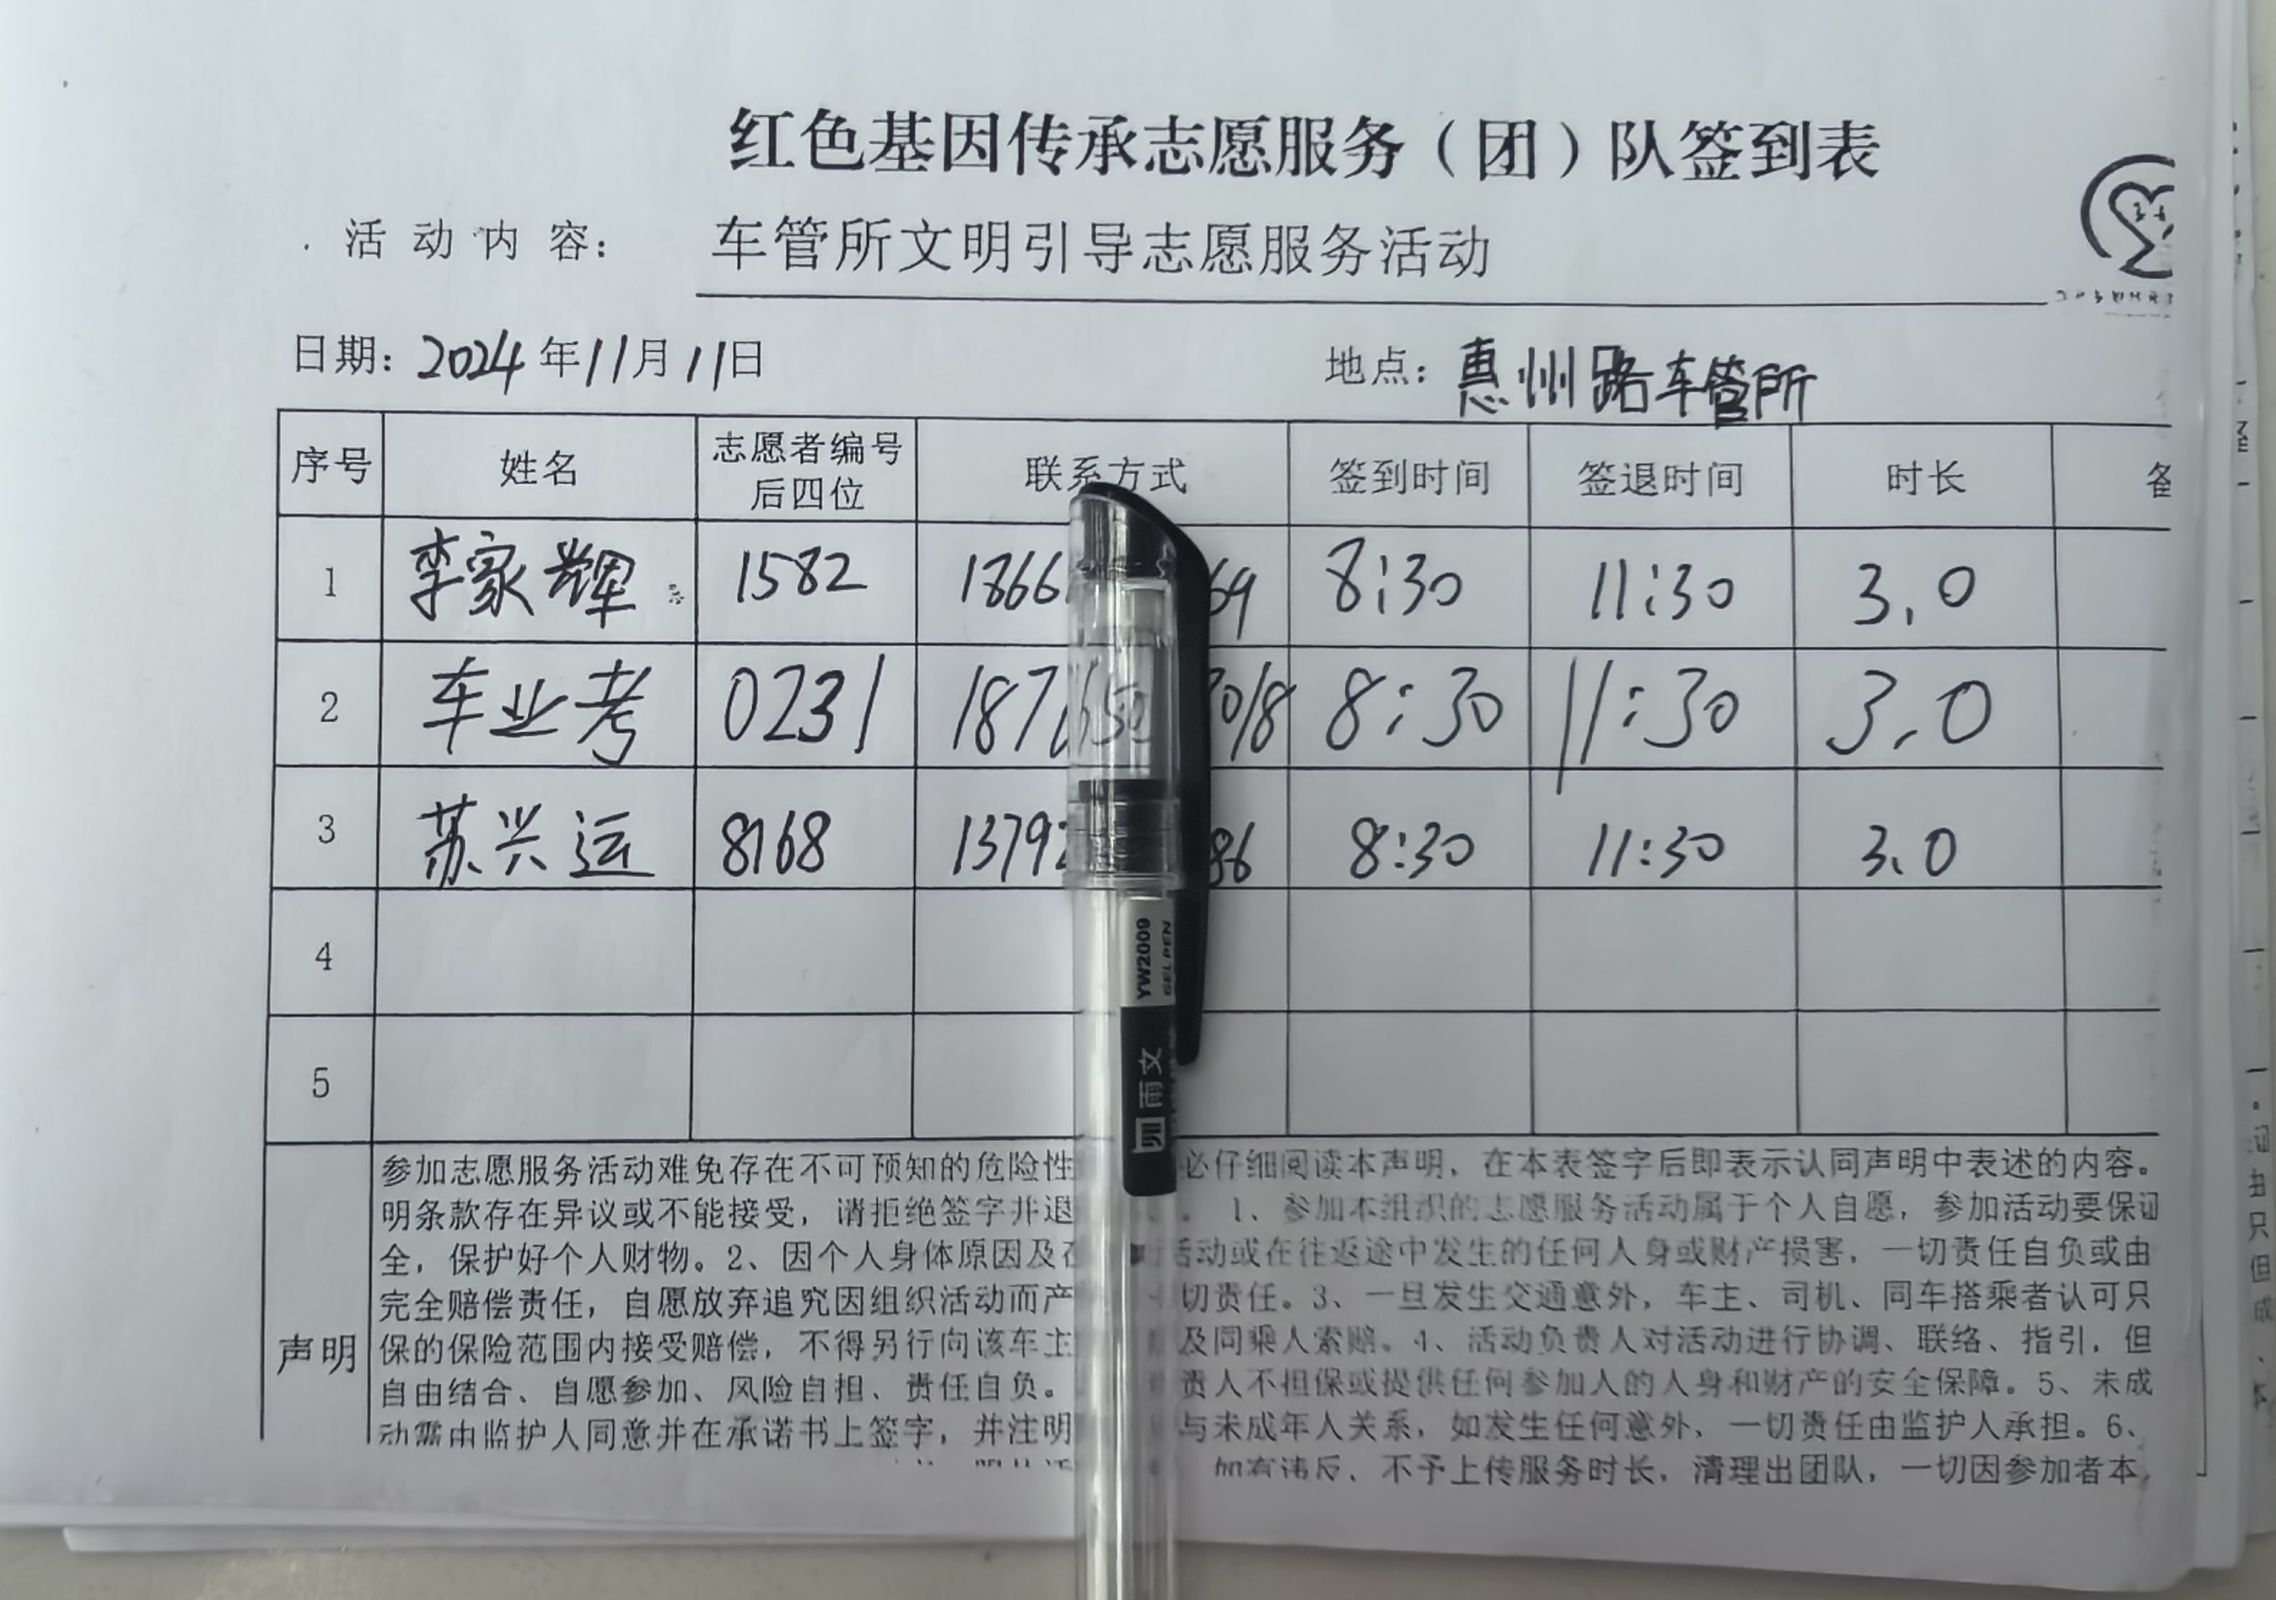 红色基因传承志愿服务（团）队签到表
活动内容： 车管所文明引导志愿服务活动
日期：2024年11月11日 地点：惠州路车管所
序号 姓名 志愿者编号后四位 联系方式 签到时间 签退时间 时长
1 李家辉 1582 1866 69 8:30 11:30 3.0
2 车业考 0231 187 018 8:30 11:30 3.0
3 苏兴运 8168 1379 86 8:30 11:30 3.0
4
5
YW2009
GELPEN
雨文
声明
参加志愿服务活动难免存在不可预知的危险性 必仔细阅读本声明，在本表签字后即表示认同声明中表述的内容。
明条款存在异议或不能接受，请拒绝签字并退 。1、参加本组织的志愿服务活动属于个人自愿，参加活动要保证
全，保护好个人财物。2、因个人身体原因及在 活动或在往返途中发生的任何人身或财产损害，一切责任自负或由
完全赔偿责任，自愿放弃追究因组织活动而产 切责任。3、一旦发生交通意外，车主、司机、同车搭乘者认可只
保的保险范围内接受赔偿，不得另行向该车主 及同乘人索赔。4、活动负责人对活动进行协调、联络、指引，但
自由结合、自愿参加、风险自担、责任自负。 责人不担保或提供任何参加人的人身和财产的安全保障。5、未成
动需由监护人同意并在承诺书上签字，并注明 与未成年人关系，如发生任何意外，一切责任由监护人承担。6、
如有违反，不予上传服务时长，清理出团队，一切因参加者本